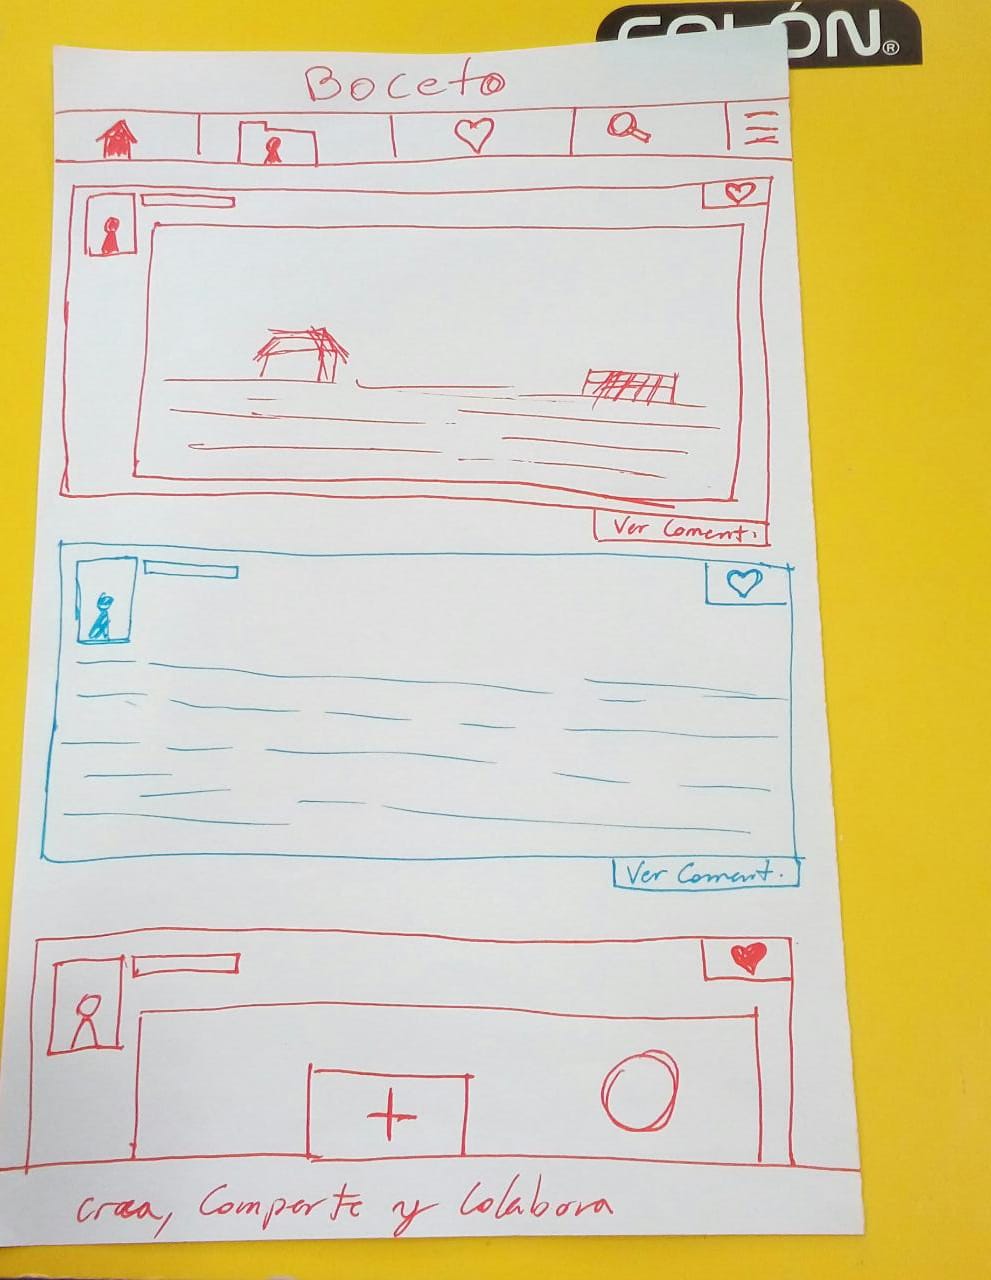 COLÓN®
Boceto
Ver Coment.
Ver Coment.
Crea, Comparte y Colabora